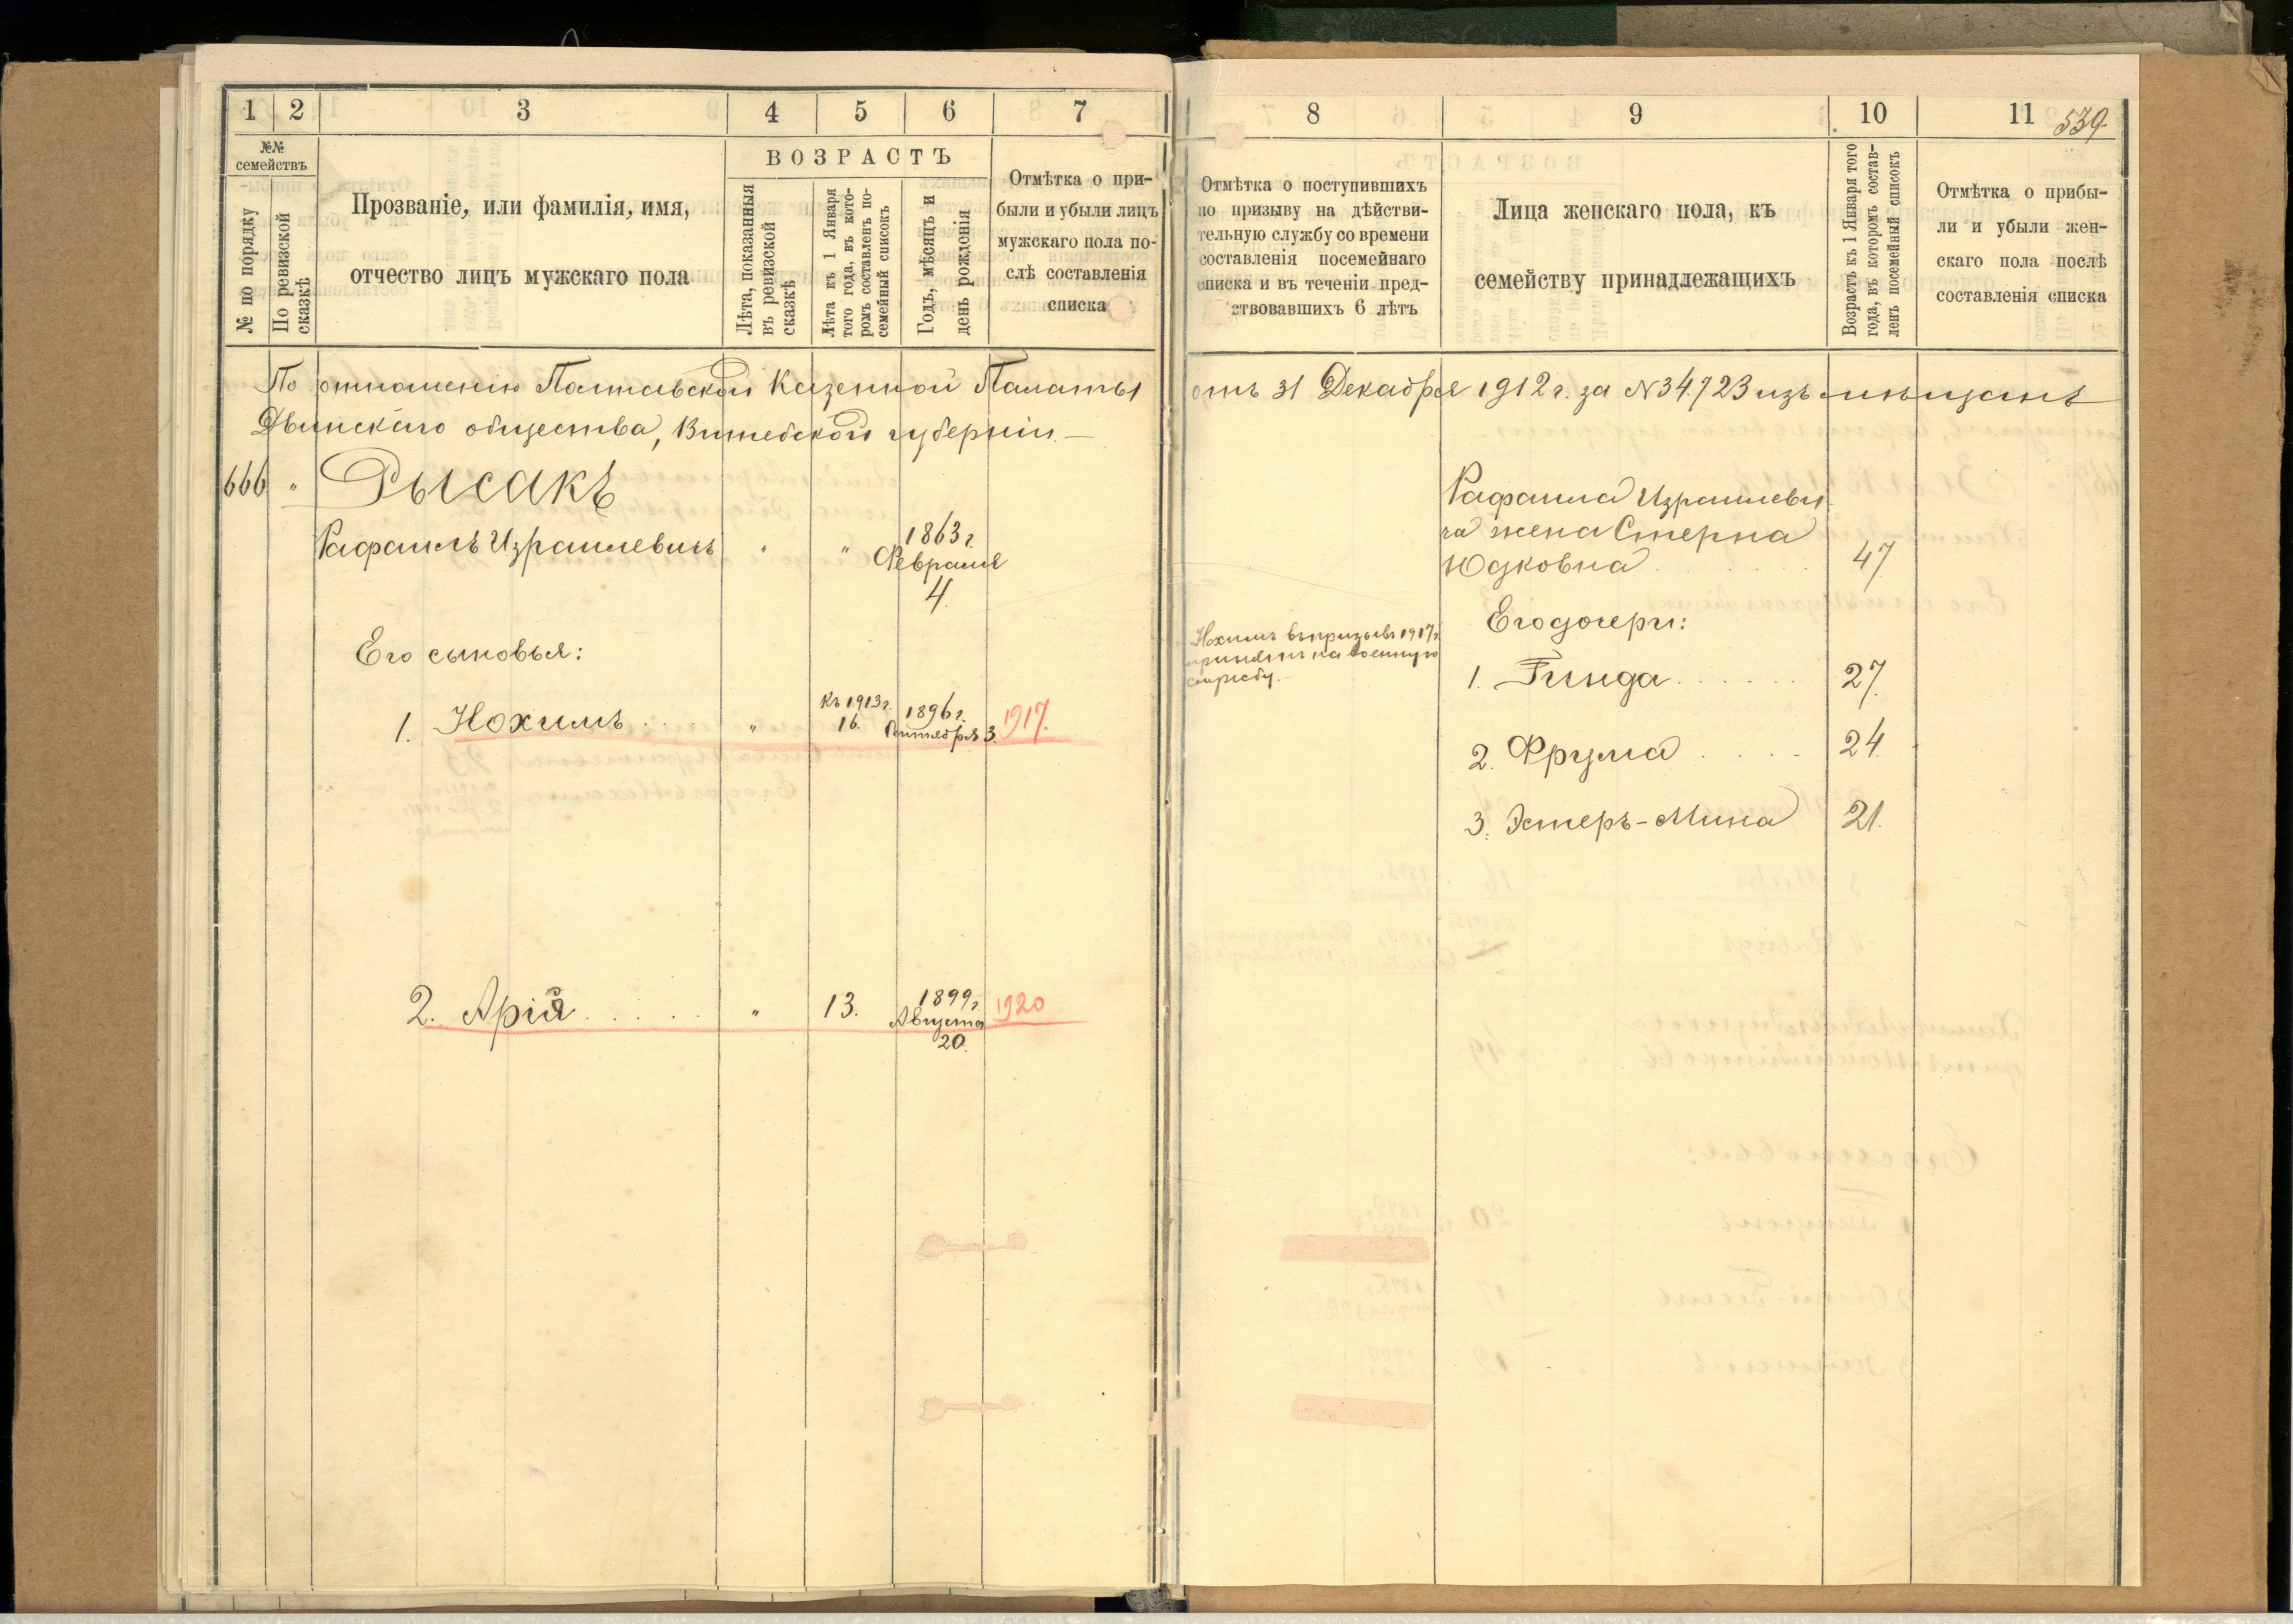 1 2 3 4 5 6 7
№№ семействъ
№ по порядку
По ревизской сказкѣ
Прозваніе, или фамилія, имя,
отчество лицъ мужскаго пола
ВОЗРАСТЪ
Лѣта, показанныя
въ ревизской
сказкѣ
Лѣта къ 1 Января
того года, въ кото-
ромъ составленъ по-
семейный списокъ
Годъ, мѣсяцъ и
день рожденія
Отмѣтка о при-
были и убыли лицъ
мужскаго пола по-
слѣ составленія
списка
По отношенію Полтавской Казенной Палаты
Двинскаго общества, Витебской губерніи. —
666 „ Рысакъ
Рафаилъ Израилевичъ „ „ 1863 г.
Февраля
4.
Его сыновья:
1. Нохимъ . . . „ Къ 1913 г. 16. 1896 г. Сентября 3. 1917.
2. Арія . . . . . „ 13. 1899 г. Августа 20. 1920
8 9 10 11 539.
Отмѣтка о поступившихъ
по призыву на дѣйстви-
тельную службу со времени
составленія посемейнаго
списка и въ теченіи пред-
ствовавшихъ 6 лѣтъ
Лица женскаго пола, къ
семейству принадлежащихъ
Возрастъ къ 1 Января того
года, въ которомъ состав-
ленъ посемейный списокъ
Отмѣтка о прибы-
ли и убыли жен-
скаго пола послѣ
составленія списка
отъ 31 Декабря 1912 г. за N 34723 изъ мѣщанъ
Рафаила Израилеви-
ча жена Стерна
Юдковна . . . . . . 47
Нохимъ въ призывъ 1917 г.
принятъ на военную
службу. —
Его дочери:
1. Гинда . . . . . . 27.
2. Фрума . . . . 24.
3. Эстеръ-Мина 21.